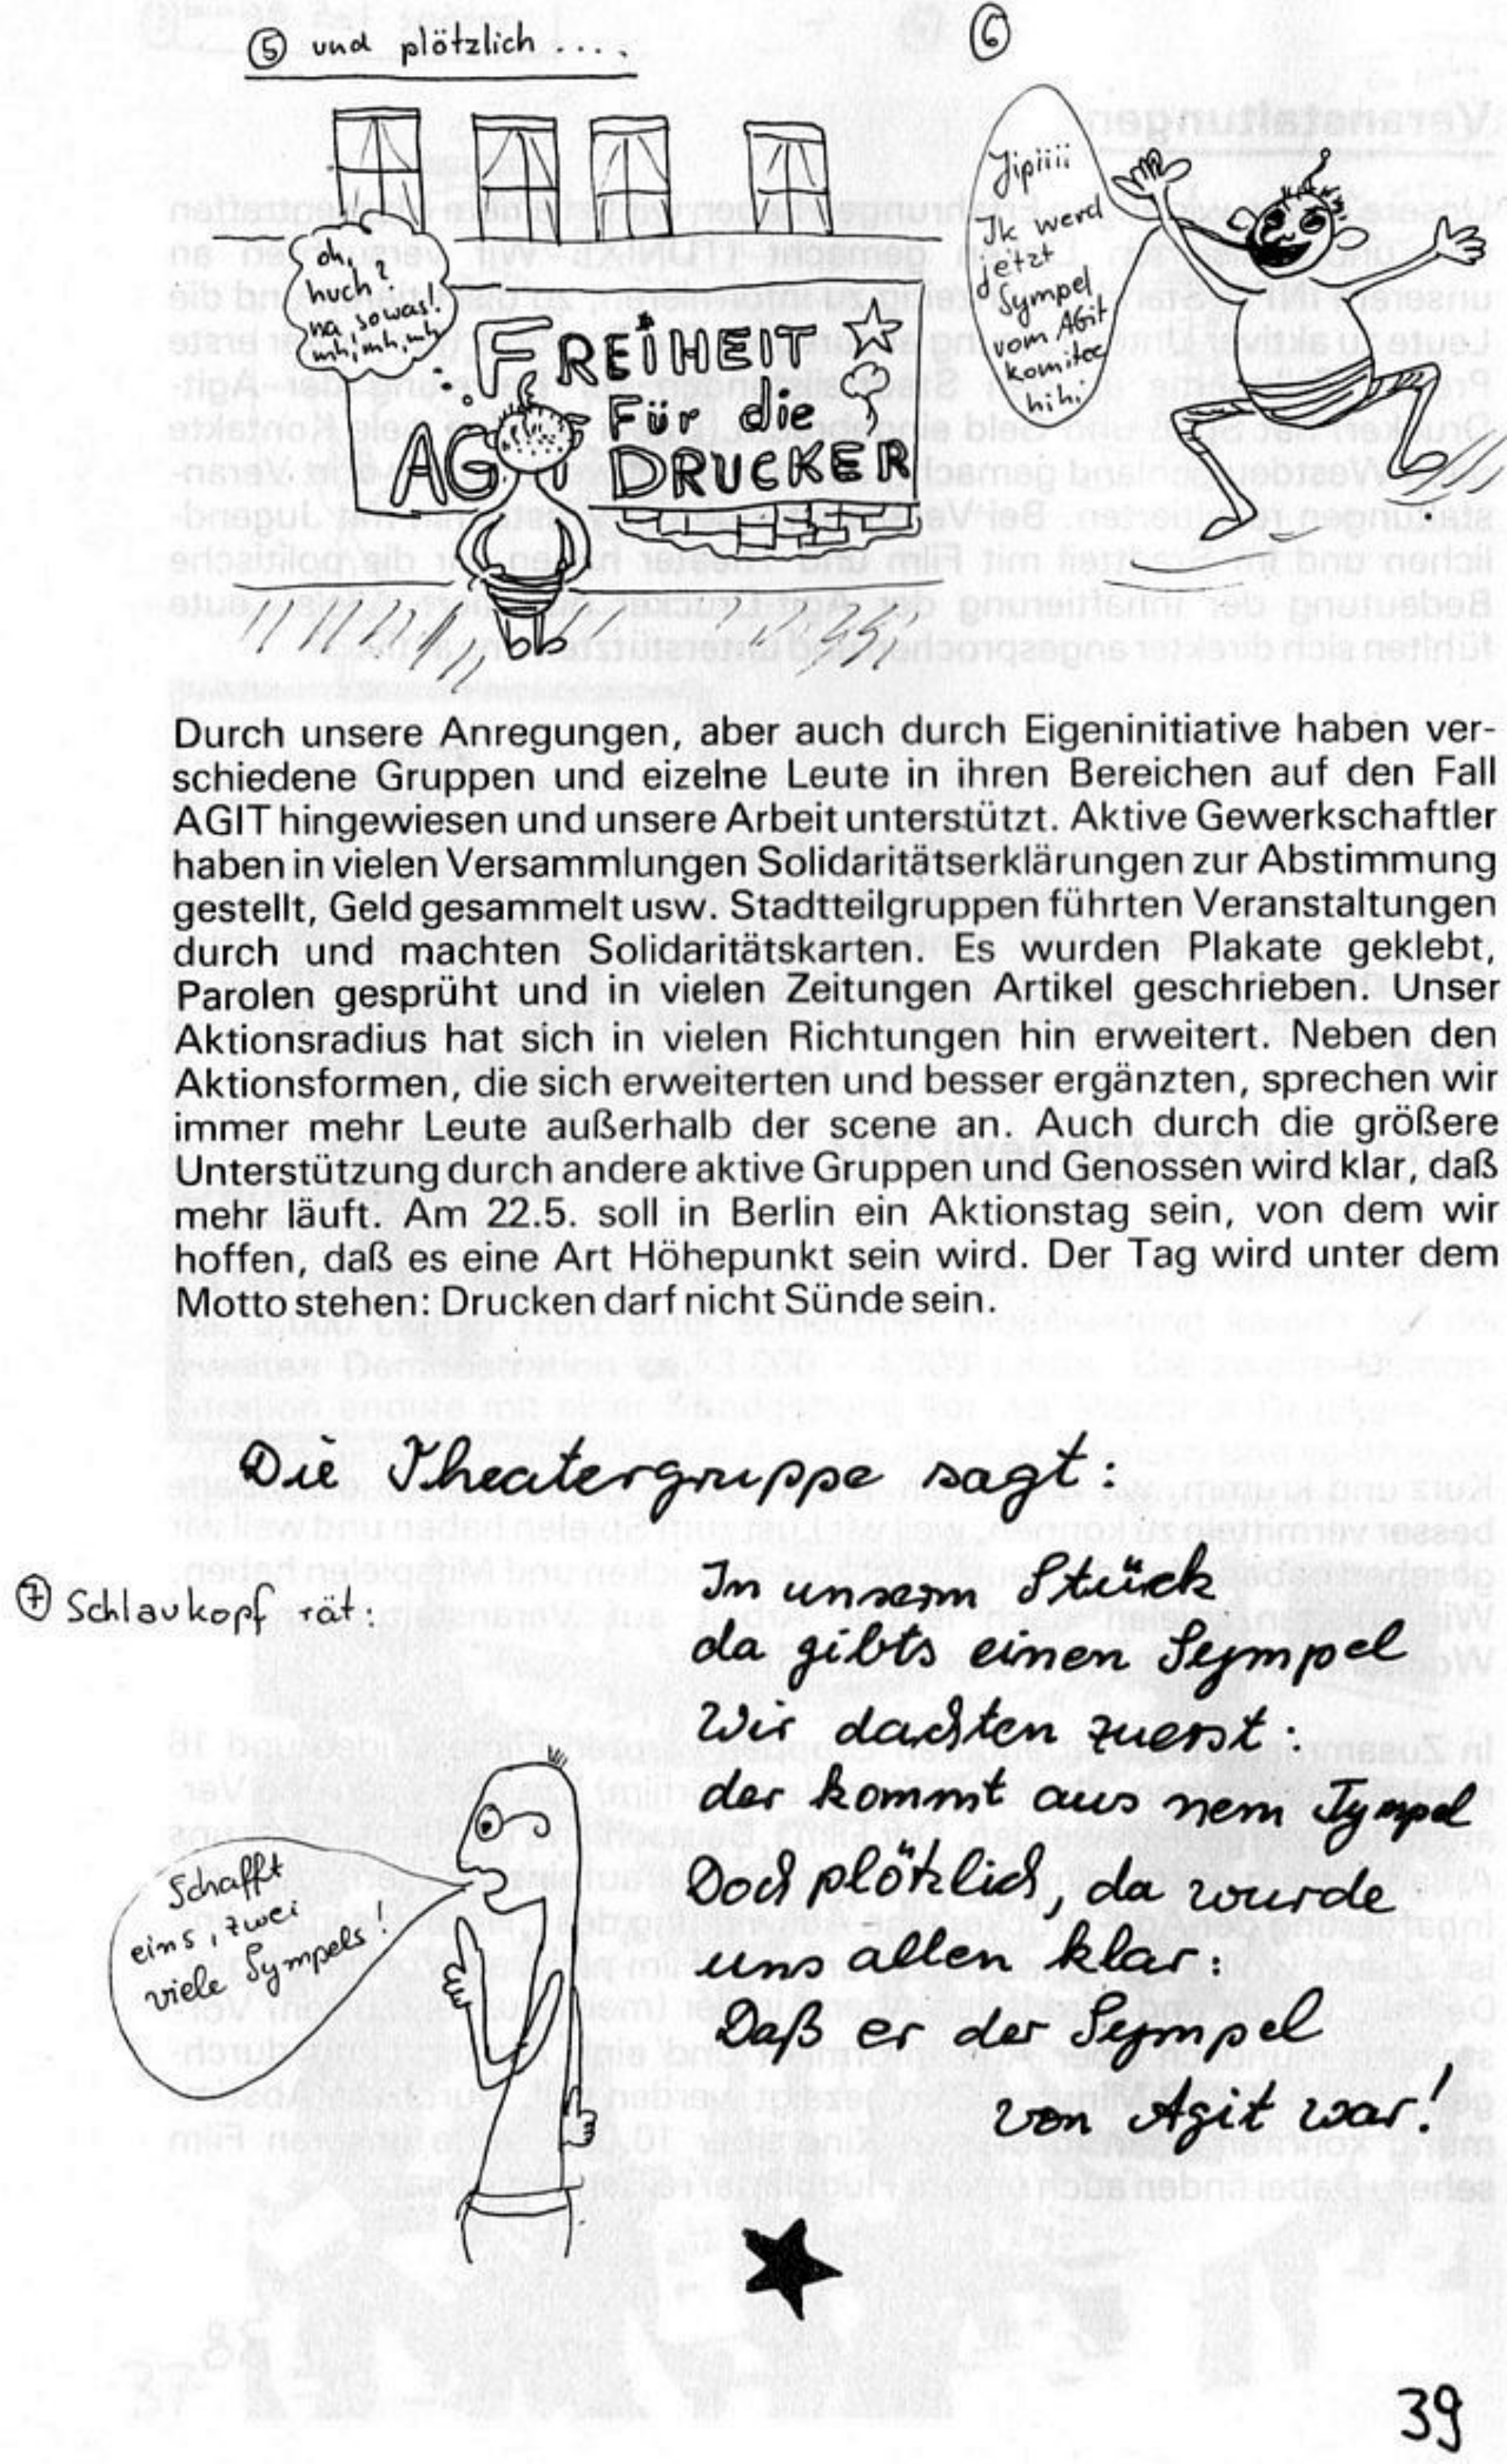 ⑤ und plötzlich ....
oh,
huch?
na, sowas!
mh, mh, mh
FREiHEIT
Für die
AGIT DRUCKER
⑥
Jipiiii
Ik werd
jetzt
Sympel
vom Agit
komitee
hihi
Durch unsere Anregungen, aber auch durch Eigeninitiative haben ver-
schiedene Gruppen und eizelne Leute in ihren Bereichen auf den Fall
AGIT hingewiesen und unsere Arbeit unterstützt. Aktive Gewerkschaftler
haben in vielen Versammlungen Solidaritätserklärungen zur Abstimmung
gestellt, Geld gesammelt usw. Stadtteilgruppen führten Veranstaltungen
durch und machten Solidaritätskarten. Es wurden Plakate geklebt,
Parolen gesprüht und in vielen Zeitungen Artikel geschrieben. Unser
Aktionsradius hat sich in vielen Richtungen hin erweitert. Neben den
Aktionsformen, die sich erweiterten und besser ergänzten, sprechen wir
immer mehr Leute außerhalb der scene an. Auch durch die größere
Unterstützung durch andere aktive Gruppen und Genossen wird klar, daß
mehr läuft. Am 22.5. soll in Berlin ein Aktionstag sein, von dem wir
hoffen, daß es eine Art Höhepunkt sein wird. Der Tag wird unter dem
Motto stehen: Drucken darf nicht Sünde sein.
Die Theatergruppe sagt:
In unserm Stück
da gibts einen Sympel
Wir dachten zuerst:
der kommt aus nem Tympel
Doch plötzlich, da wurde
uns allen klar:
Daß er der Sympel
von Agit war!
⑦ Schlaukopf rät:
Schafft
eins, zwei
viele Sympels!
39